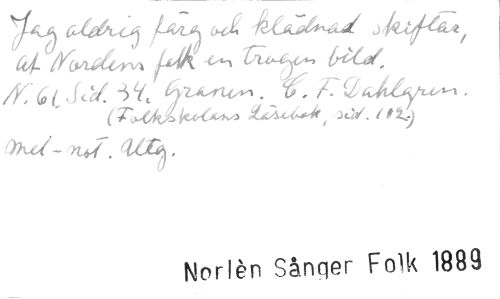 Jag aldrig färg och klädnad skiftar,
af Nordens folk en trogen bild.
N. 61, Sid. 34. Granen. C. F. Dahlgren.
(Folkskolans Läsebok, sid. 102.)
Mel-not. Utg.
Norlèn Sånger Folk 1889